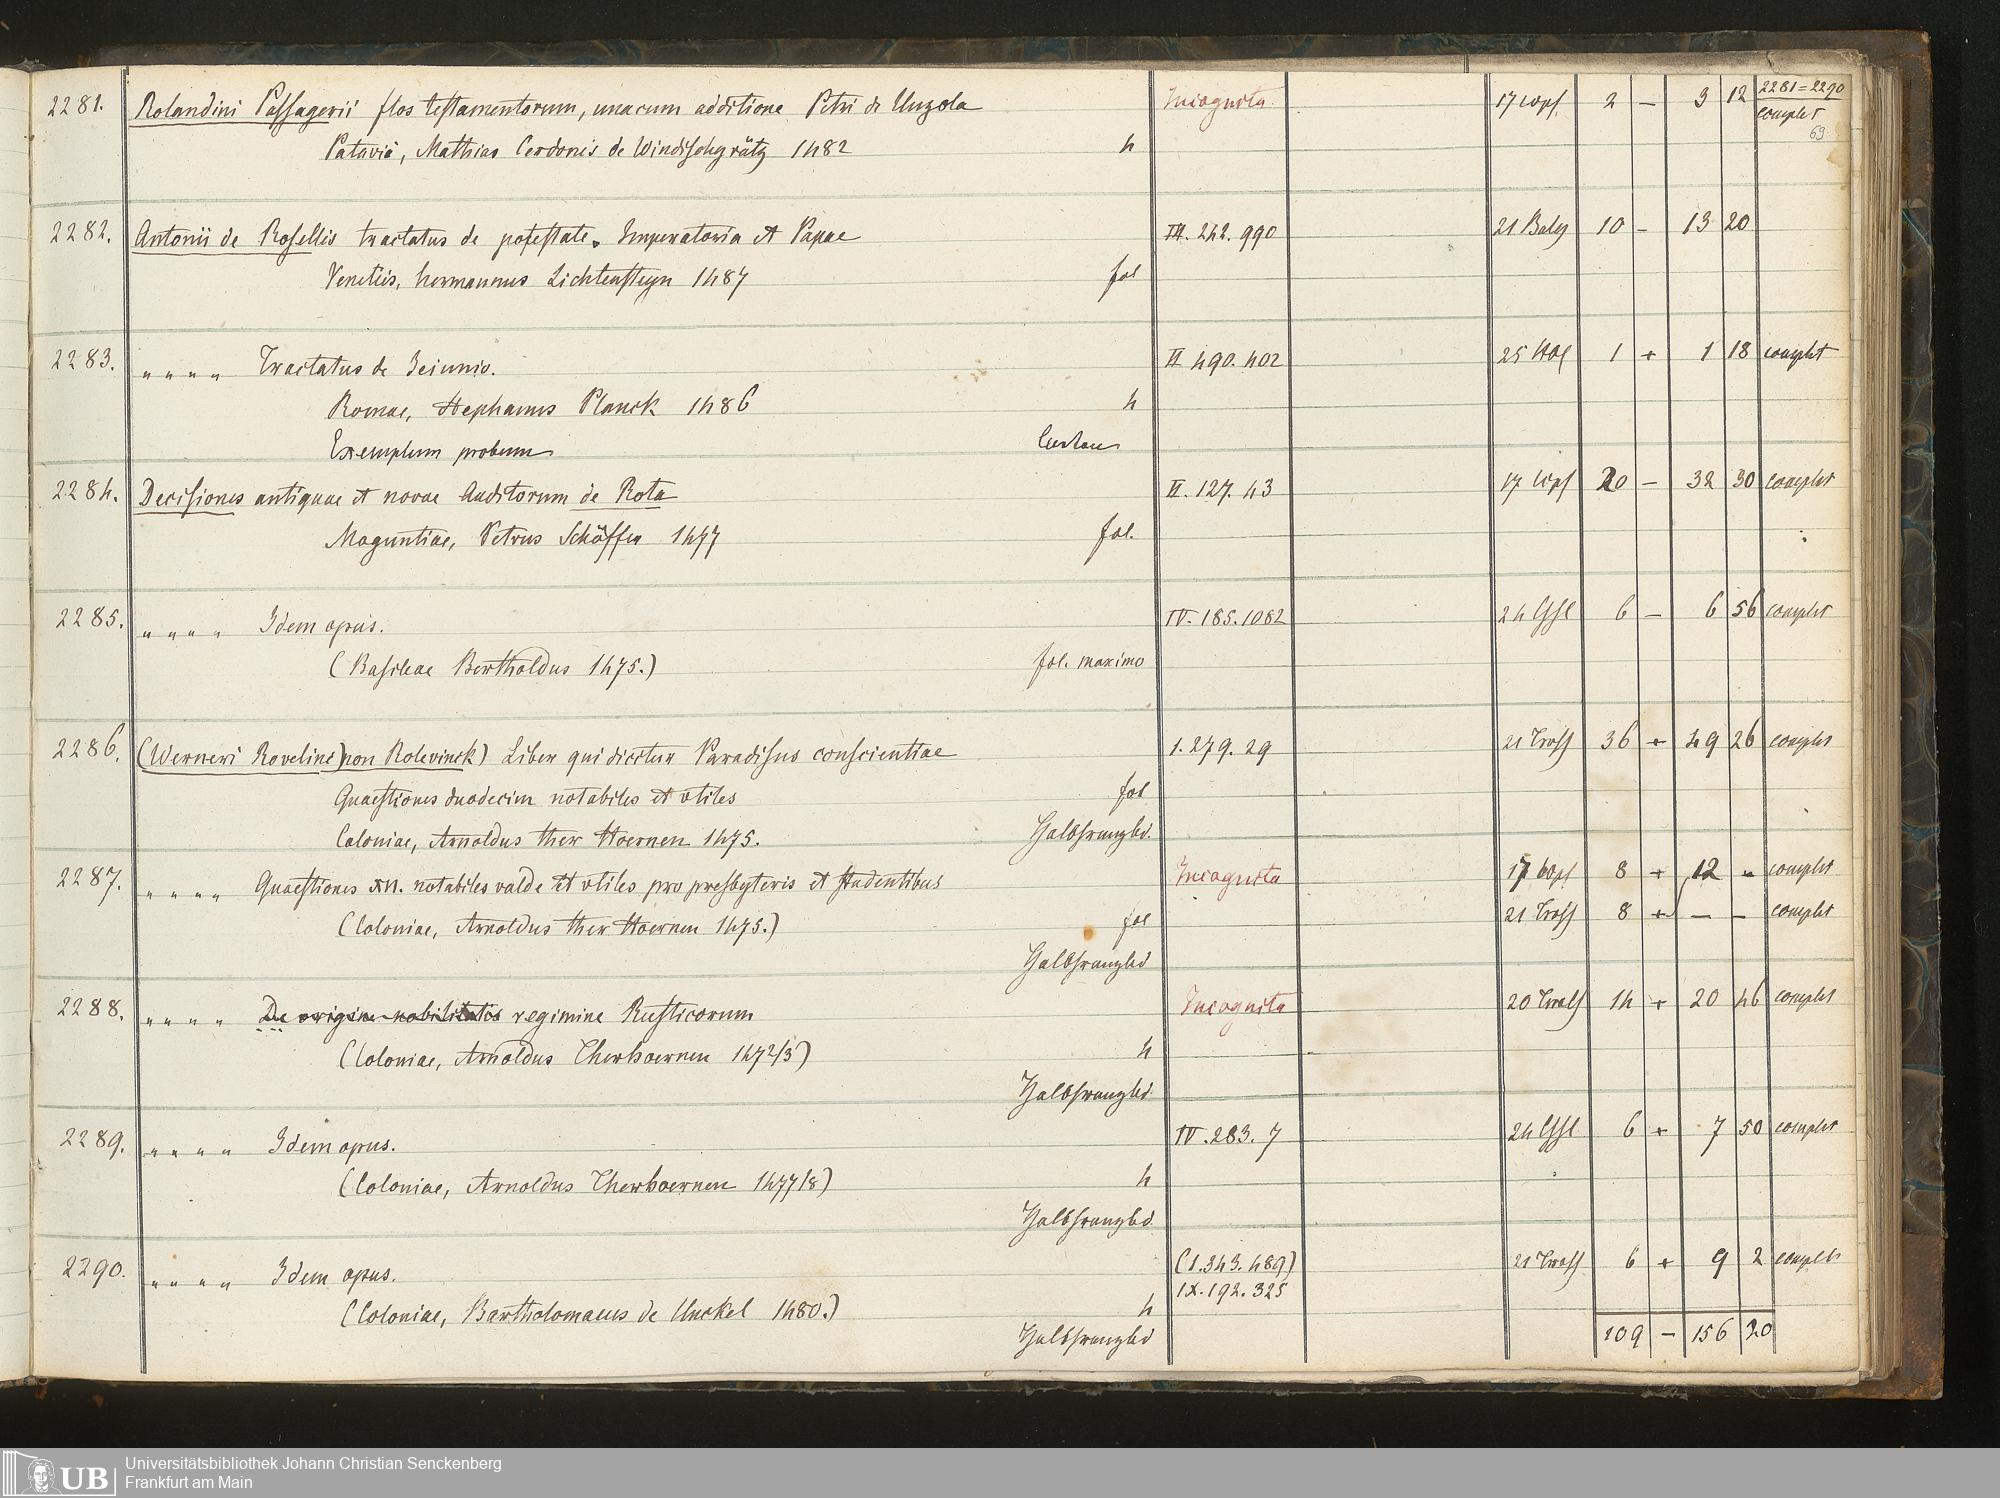 2281. Rolandini Passagerii flos testamentorum, unacum additione Petri de Unzola Incognita 17 2 – 3 12 2281=2290 complet
Patavii, Mathias Cerdonis de Windischgrätz 1482 4 69
2282. Antonii de Rosellis tractatus de potestate Imperatoria et Papae III. 242. 990 21 10 – 13 20
Venetiis, hermannus Lichtensteyn 1487 fol
2283. " " " " Tractatus de Jeiunio. II 490. 402 25 1 + 1 18 complet
Romae, Stephanus Planck 1486 4
Exemplum probum
2284. Decisiones antiquae et novae Auditorum de Rota II. 127. 43 17 20 – 32 30 complet
Maguntiae, Petrus Schöffer 1477 fol.
2285. " " " " Idem opus. IV. 185. 1082 24 6 – 6 56 complet
(Basileae Bertholdus 1475.) fol. maximo
2286. (Werneri Roveline) non Rolevinck) Liber qui dicitur Paradisus conscientiae 1. 279. 29 21 Tross 36 + 49 26 complet
Quaestiones duodecim notabiles et utiles fol
Coloniae, Arnoldus ther Hoernen 1475. Halbfranzbd.
2287. " " " " Quaestiones XII. notabiles valde et utiles pro presbyteris et studentibus Incognita 17 8 + 12 " complet
(Coloniae, Arnoldus ther Hoernen 1475.) fol 21 Tross 8 + – – complet
Halbfranzbd
2288. " " " " De origine nobilitatis regimine Rusticorum Incognita 20 Tross 14 + 20 46 complet
(Coloniae, Arnoldus Therhoernen 1472/3) 4
Halbfranzbd
2289. " " " " Idem opus. IV. 283. 7 24 6 + 7 50 complet
(Coloniae, Arnoldus Therhoernen 1477/8) 4
Halbfranzbd.
2290. " " " " Idem opus. (1. 343. 489) 21 Tross 6 + 9 2 complet
IX. 192. 325
(Coloniae, Bartholomaeus de Unckel 1480.) 4
Halbfranzbd 109 – 156 20
UB Universitätsbibliothek Johann Christian Senckenberg
Frankfurt am Main